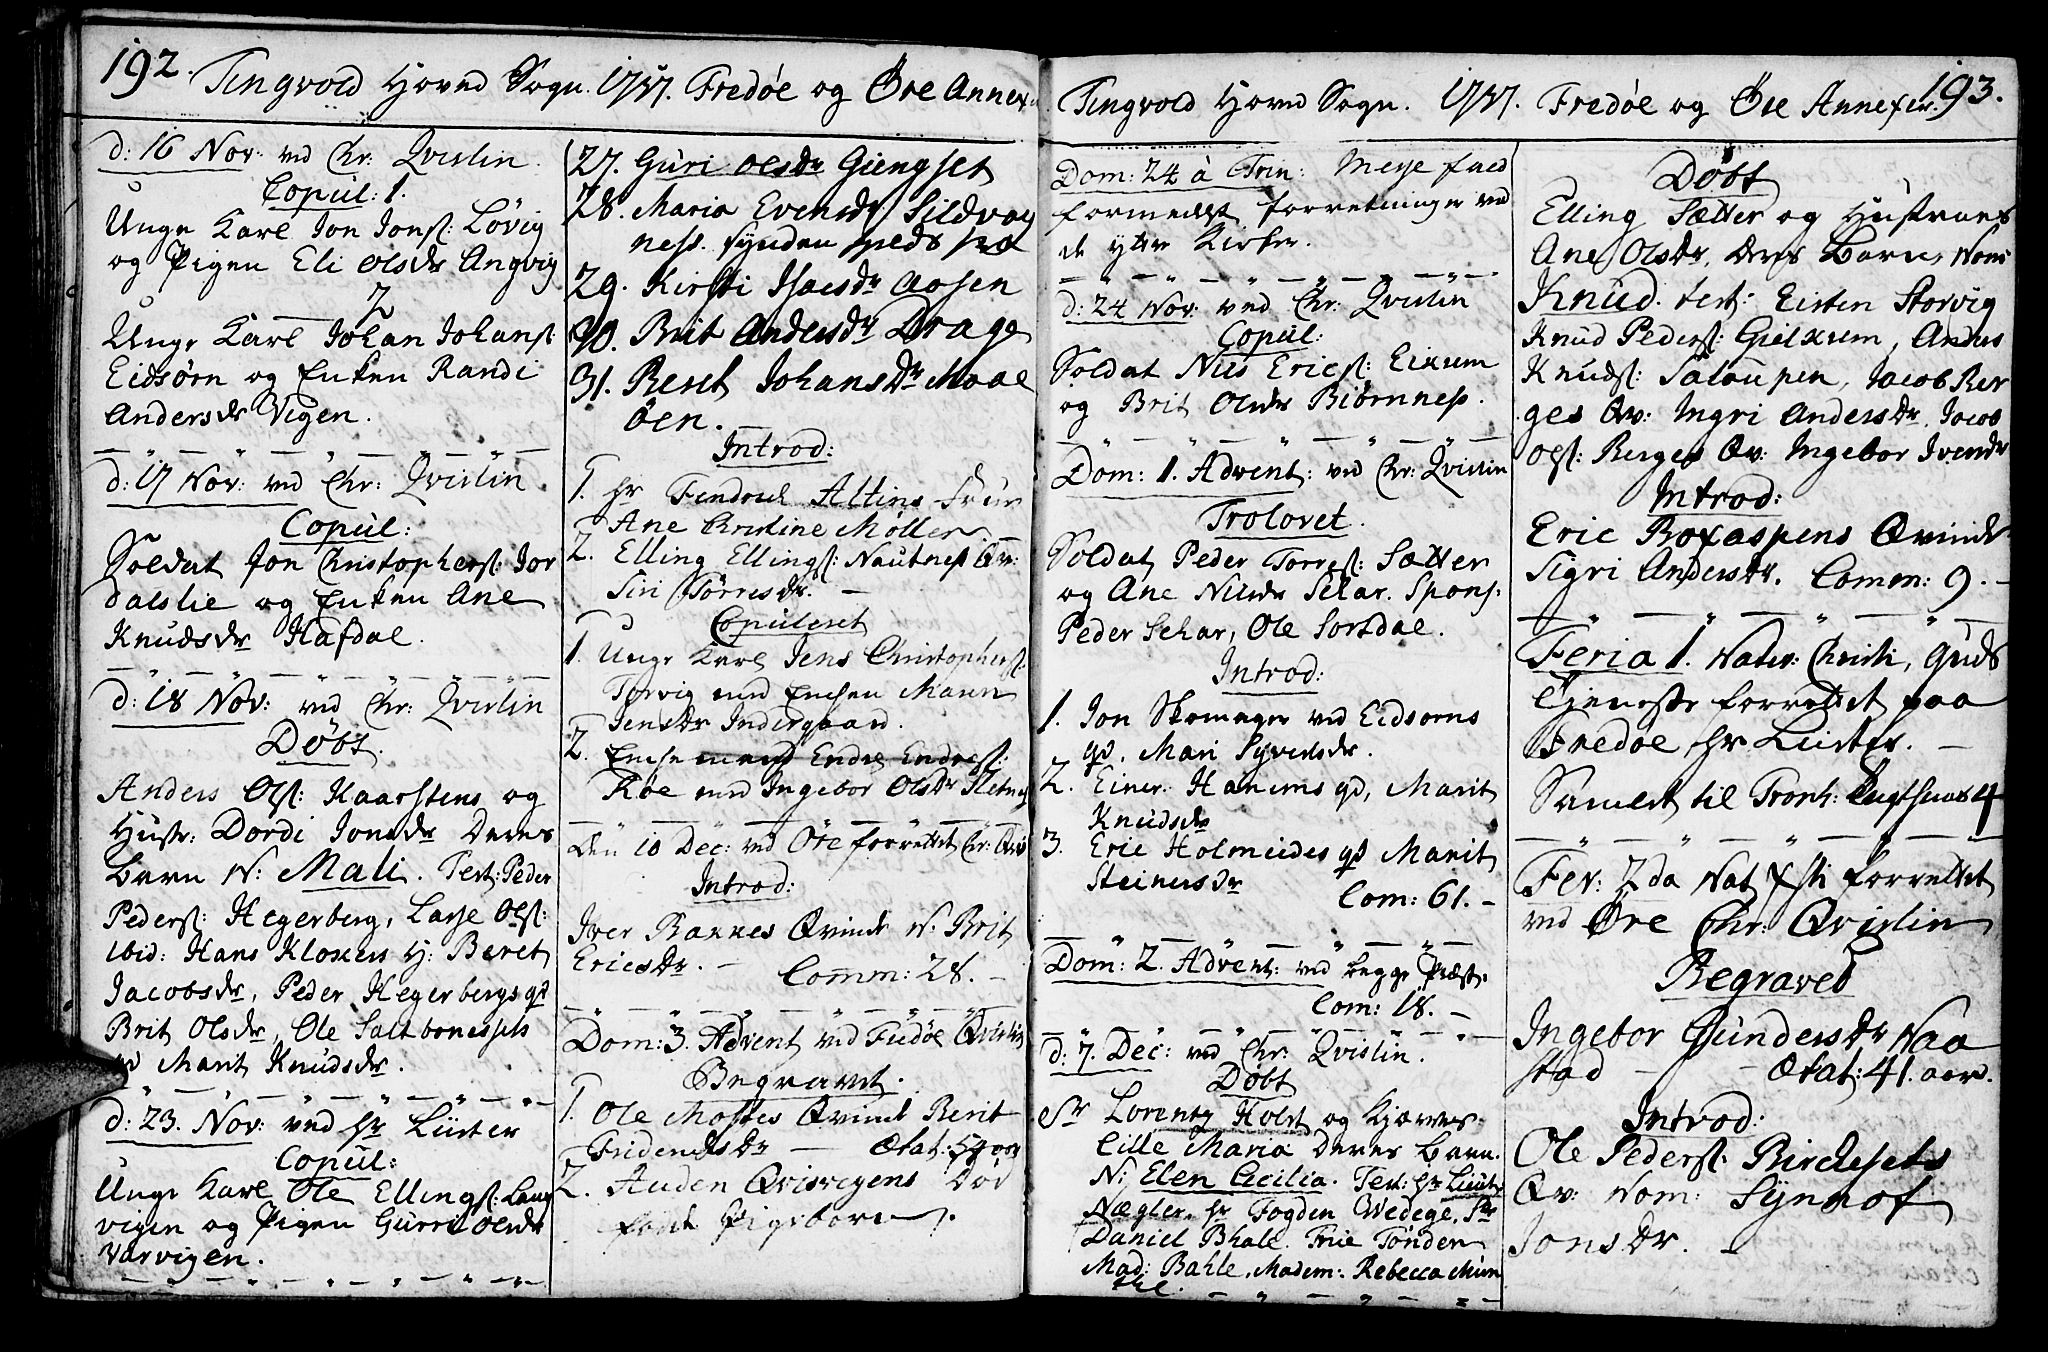 192. Tingvold Hoved Sogn. 1757. Fredøe og Øre Annex
d: 16 Nov: ved Chr: Qvislin.
Copul: 1.
Unge Karl Jon Jons: Løvig
og Pigen Eli Olsdr Angvig
2
Unge Karl Johan Johans:
Eidsørn og Enken Randi
Andersdr Vigen.
d: 17 Nov: ved Chr: Qvislin
Copul:
Soldat Jon Christophers: Jor
dalslie og Enken Ane
Knudsdr Hafdal.
d: 18 Nov: ved Chr: Qvislin
Døbt.
Anders Ols: Kaarstens og
Hustr: Dordi Jonsdr Deres
Barn N: Mali. Test: Peder
Peders: Hegerberg, Lasse Ols:
ibid: Hans Kloxess H: Beret
Jacobsdr, Peder Hegerbergs qd
Brit Olsdr, Ole Saltbonessets
qd Marit Knudsdr.
d: 23. Nov: ved Hr Lüster
Copul:
Unge Karl Ole Ellings: Lang
vigen og Pigen Gurri Olsdr
Varvigen.
27. Guri Olsdr Giengset
28. Maria Evensdr Sildvog
ness.
29. Kirsti Isacsdr Aasen
30. Brit Andersdr Drage
31. Beret Johansdr Moae
øen.
Introd:
1. Hr Fendrich Altins Frue
Ane Christine Møller
2. Elling Ellings: Nautness Qv:
Siri Torresdr.
Copuleret
1. Unge Karl Jens Christophers:
Torvig med Enken Maren
Jensdr Indergaard.
2. Enkemand Endre Endres:
Røe med Ingebor Olsdr Fletnes
Den 10 Dec: ved Øre forrettet Chr: Qvis
Introd:
Iver Bakkes Qvinde N. Brit
Ericsdr. - Comm: 28. -
Dom: 3. Advent ved Fredøe Qvislin
Begravet.
1. Ole Mostes Qvinde Berit
Fridensdr - Ætat: 54 aar
2. Auden Qvisvigens Død
født Pigebarn.
Tingvold Hoved Sogn. 1757. Fredøe og Øre Annexer. 193.
Dom: 24 à Trin: Messe fald
formedelst forretninger ved
de ytre Kirker.
d: 24 Nov: ved Chr: Qvislin
Copul:
Soldat Nils Erics: Eikum
og Brit Olsdr Biørnness.
Dom: 1. Advent: ved Chr: Qvislin
Trolovet.
Soldat Peder Torres: Sætter
og Ane Nilsdr Schar. Spons:
Peder Schar, Ole Sorsdal.
Introd:
1. Jon Skomager ved Eidsørns
qd, Mari Syversdr.
2. Einer Hanems qd, Marit
Knudsdr
3. Eric Holmeides qd Marit
Steinersdr
Com: 61. -
Dom: 2. Advent: ved begge Præst:
Com: 18. -
d: 7. Dec: ved Chr: Qvislin.
Døbt
Sr Lorentz Holst og Kjæres:
Cille Maria Deres Barn.
N: Elen Cecilia. Test: Hr Lieut:
Nægler, Hr Fogden Wedege, Sr
Daniel Bhale. Frue Tønder
Mad: Bahle, Madem: Rebecca Mün
thel.
Døbt
Elling Sætter og Hustrues
Ane Olsdr, Deres Barn, Nom:
Knud. test: Eisten Storvig
Knud Peders: Gielkum, Anders
Knuds: Saloupen, Jacob Ber
ges Qv: Ingri Andersdr, Jacob
Ols: Berges Qv: Ingebor Iversdr
Introd:
Eric Boxaspens Qvinde
Sigri Andersdr. Comm: 9. -
Feria 1. Nater: Christi, Guds
Tjeneste forrettet paa
Fredøe Hr Lüster. -
Samlet til Tronh:
Fer: 2da Nat Xsti forrettet
ved Øre Chr: Qvislin
Begravet
Ingebor Gundersdr Naa
stad - - Ætat: 41. aar.
Introd:
Ole Peders: Birchsets
Qv: Nom: Synnof
Jonsdr. -